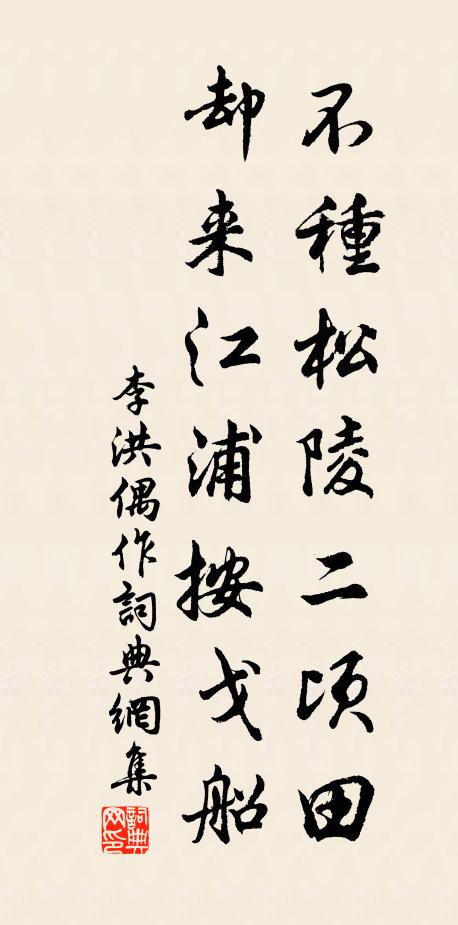 不種松陵二頃田
却来江浦按戈船
李洪偶作詞典網集
詞典网印